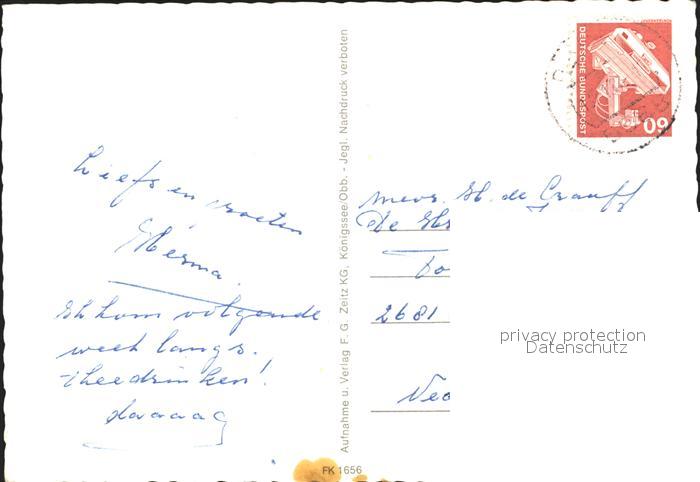 Liefs en groeten
Herma.
Ik kom volgende
week langs.
theedrinken!
daaaag
Aufnahme u. Verlag F. G. Zeitz KG., Königssee/Obb. - Jegl. Nachdruck verboten
FK 1656
DEUTSCHE BUNDESPOST
60
mevr. H. de Graaff
De
2681
privacy protection
Datenschutz